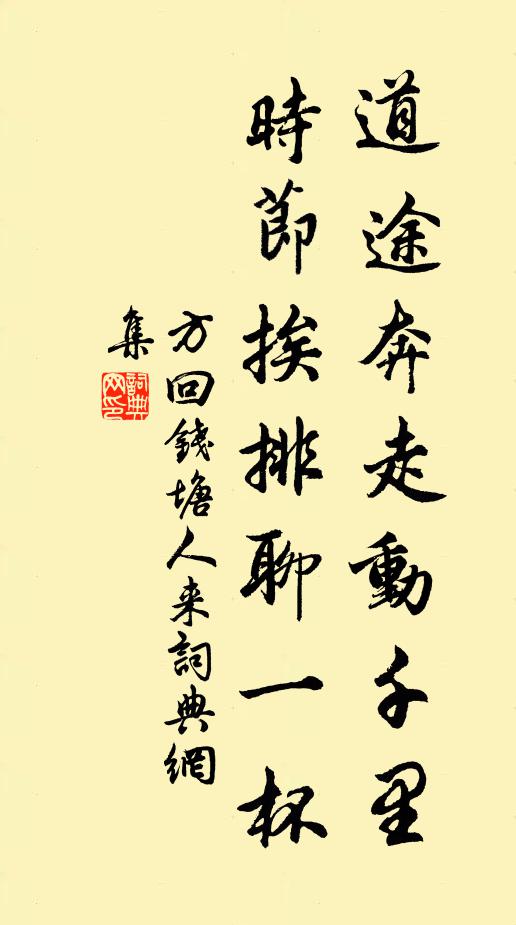 道途奔走動千里
時節挨排聊一杯
方回錢塘人来詞典網
集
詞典
网印